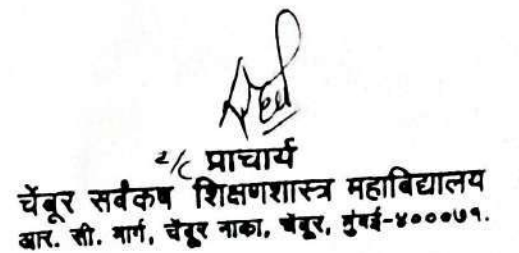 I/C प्राचार्य
चेंबूर सर्वंकष शिक्षणशास्त्र महाविद्यालय
आर. सी. मार्ग, चेंबूर नाका, चेंबूर, मुंबई-४०००७१.